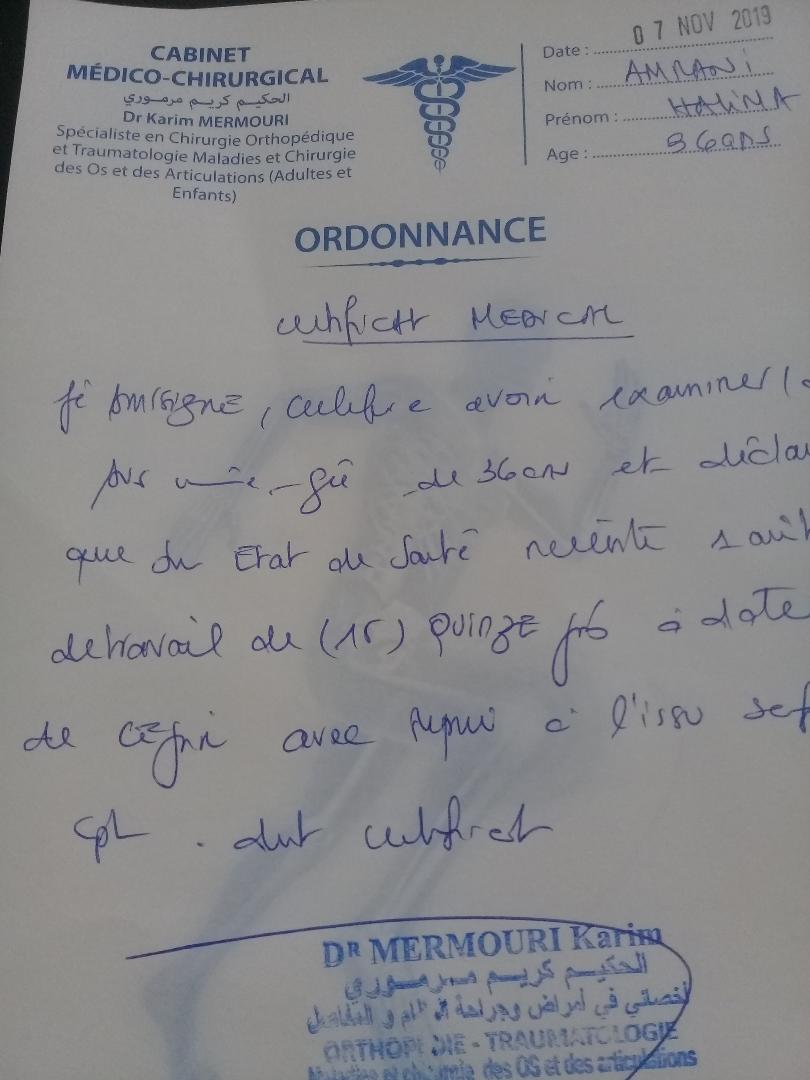 CABINET
MÉDICO-CHIRURGICAL
الحكيم كريم مرموري
Dr Karim MERMOURI
Spécialiste en Chirurgie Orthopédique
et Traumatologie Maladies et Chirurgie
des Os et des Articulations (Adultes et
Enfants)
Date : 07 NOV 2019
Nom : AMRANI
Prénom : HALIMA
Age : 36 ans
ORDONNANCE
certificat MEDICAL
certifie avoir examiner
de 36 ans et décla
que Etat de Santé necéite
de travail de (15) QUINZE à date
de avec à l'issu
certificat
DR MERMOURI Karim
الحكيم كريم مرموري
أخصائي في أمراض وجراحة العظام و المفاصل
ORTHOPEDIE - TRAUMATOLOGIE
Maladies et chirurgie des OS et des articulations